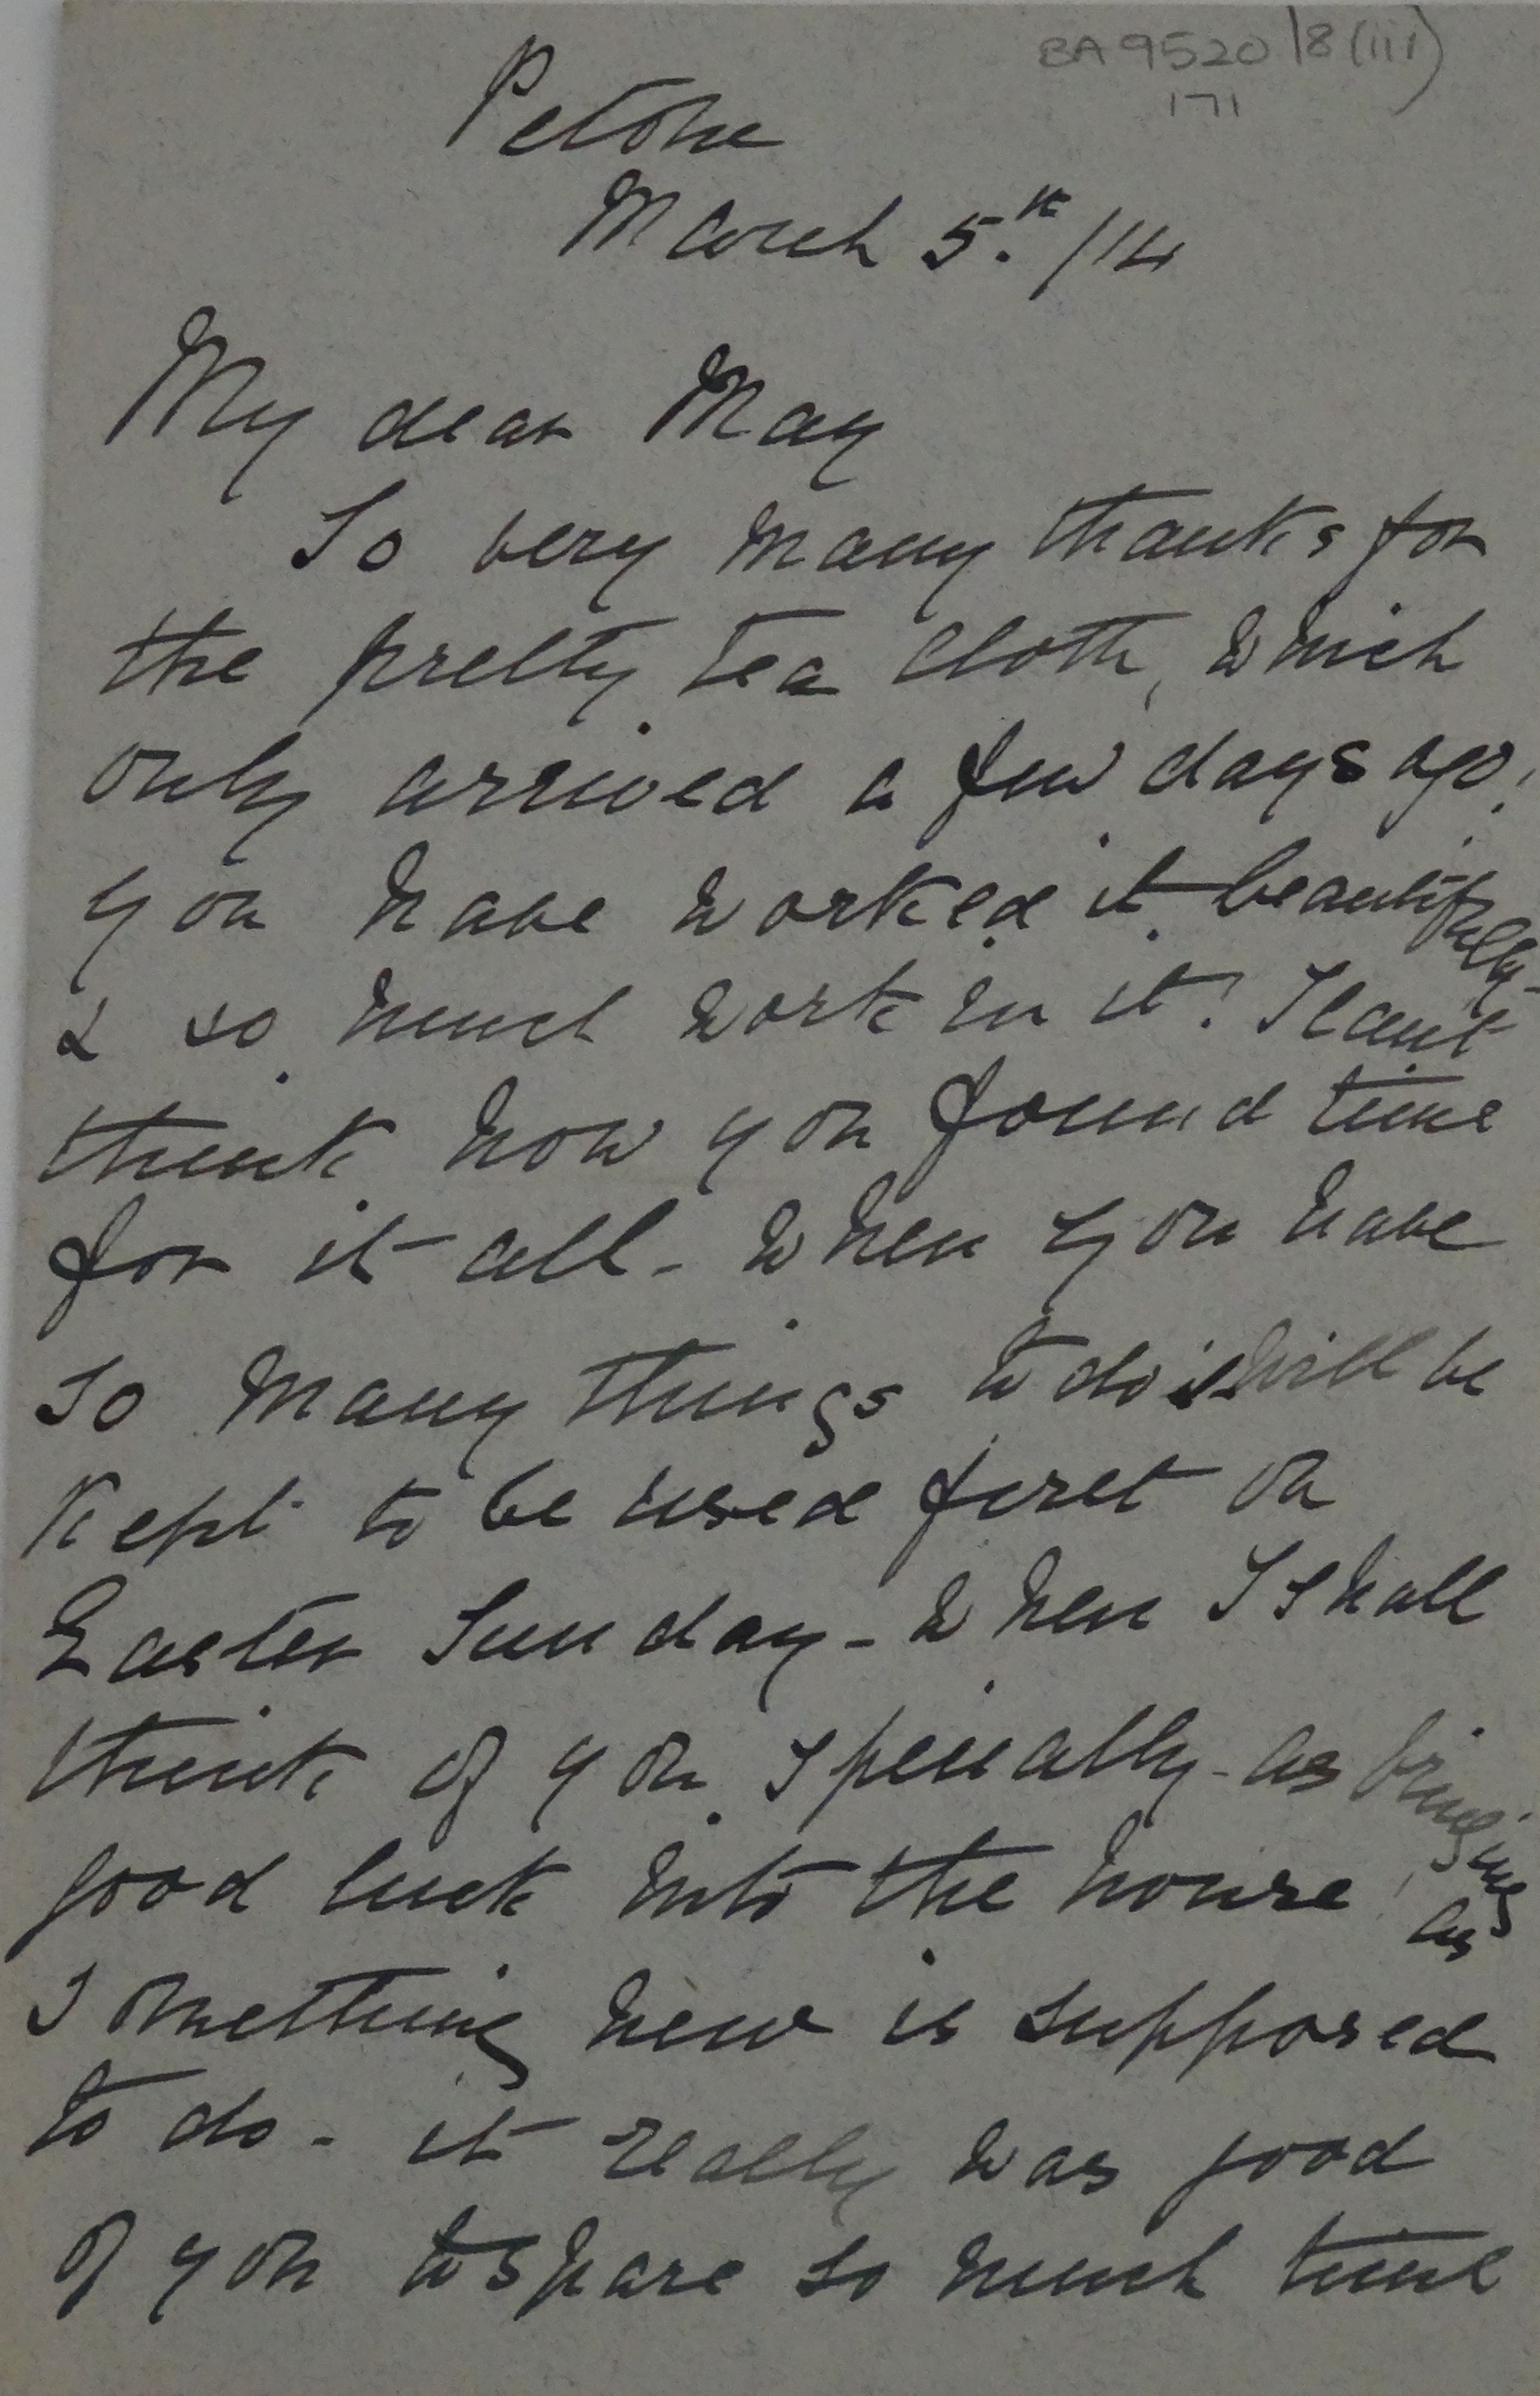 BA 9520/8(iii)
171
Petone
March 5.th /14
My dear May
So very many thanks for
the pretty tea cloth, which
only arrived a few days ago!
you have worked it beautifully -
& so much work in it! I cant
think how you found time
for it all - when you have
so many things to do it will be
kept to be used first on
Easter Sunday - when I shall
think of you specially - as bringing
good luck into the house! as
something new is supposed
to do - it really was good
of you to spare so much time